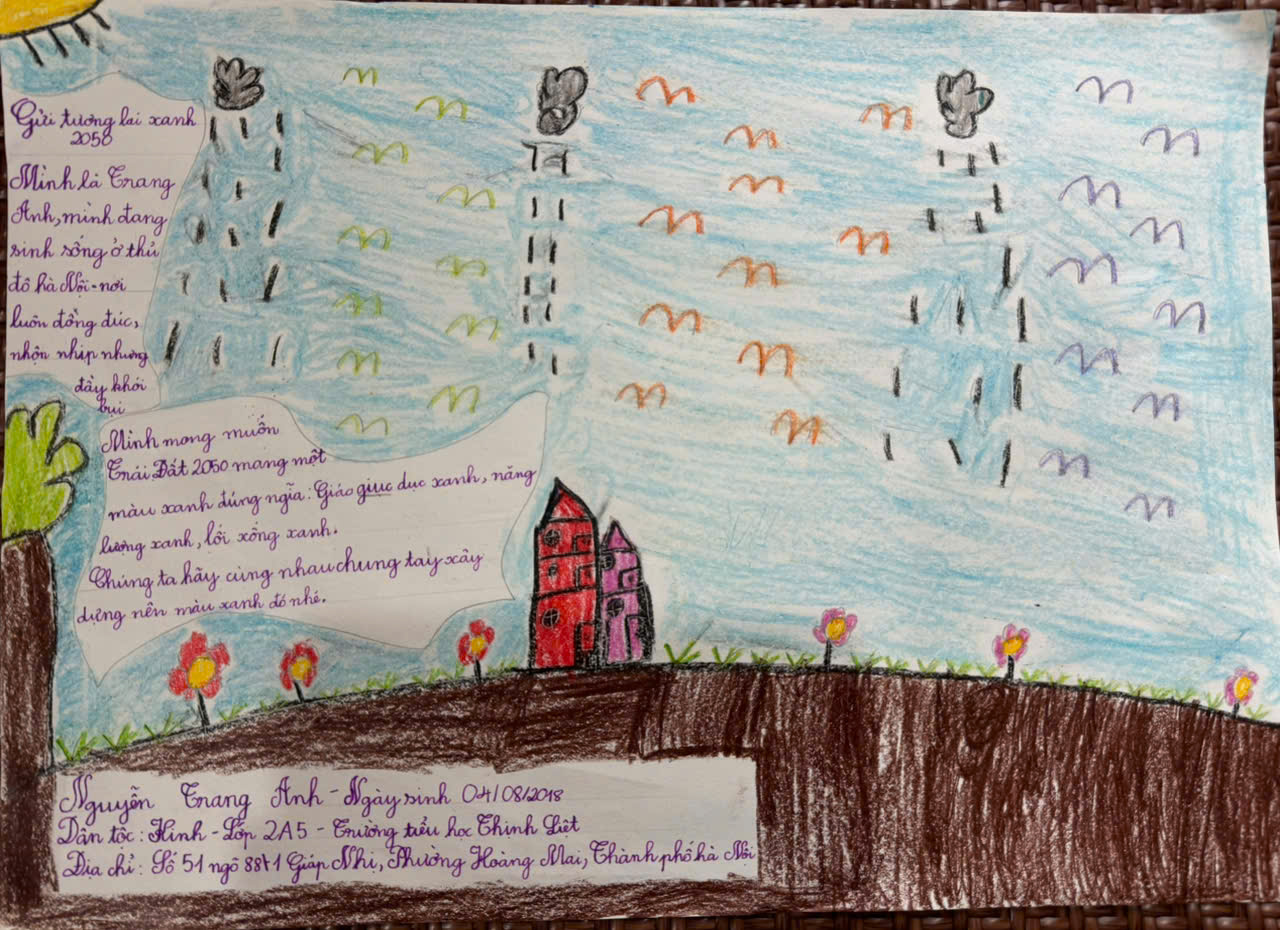 Gửi tương lai xanh
2050
Mình là Trang
Anh, mình đang
sinh sống ở thủ
đô hà Nội - nơi
luôn đông đúc,
nhộn nhịp nhưng
đầy khói
bụi
Mình mong muốn
Trái Đất 2050 mang một
màu xanh đúng ngĩa: Giáo giuc dục xanh, năng
lượng xanh, lối xống xanh.
Chúng ta hãy cùng nhau chung tay xây
dựng nên màu xanh đó nhé.
Nguyễn Trang Anh - Ngày sinh 04/08/2018
Dân tộc: Kinh - Lớp 2A5 - Trường tiểu học Thịnh Liệt
Địa chỉ: Số 51 ngõ Giáp Nhị, Phường Hoàng Mai, Thành phố hà Nội